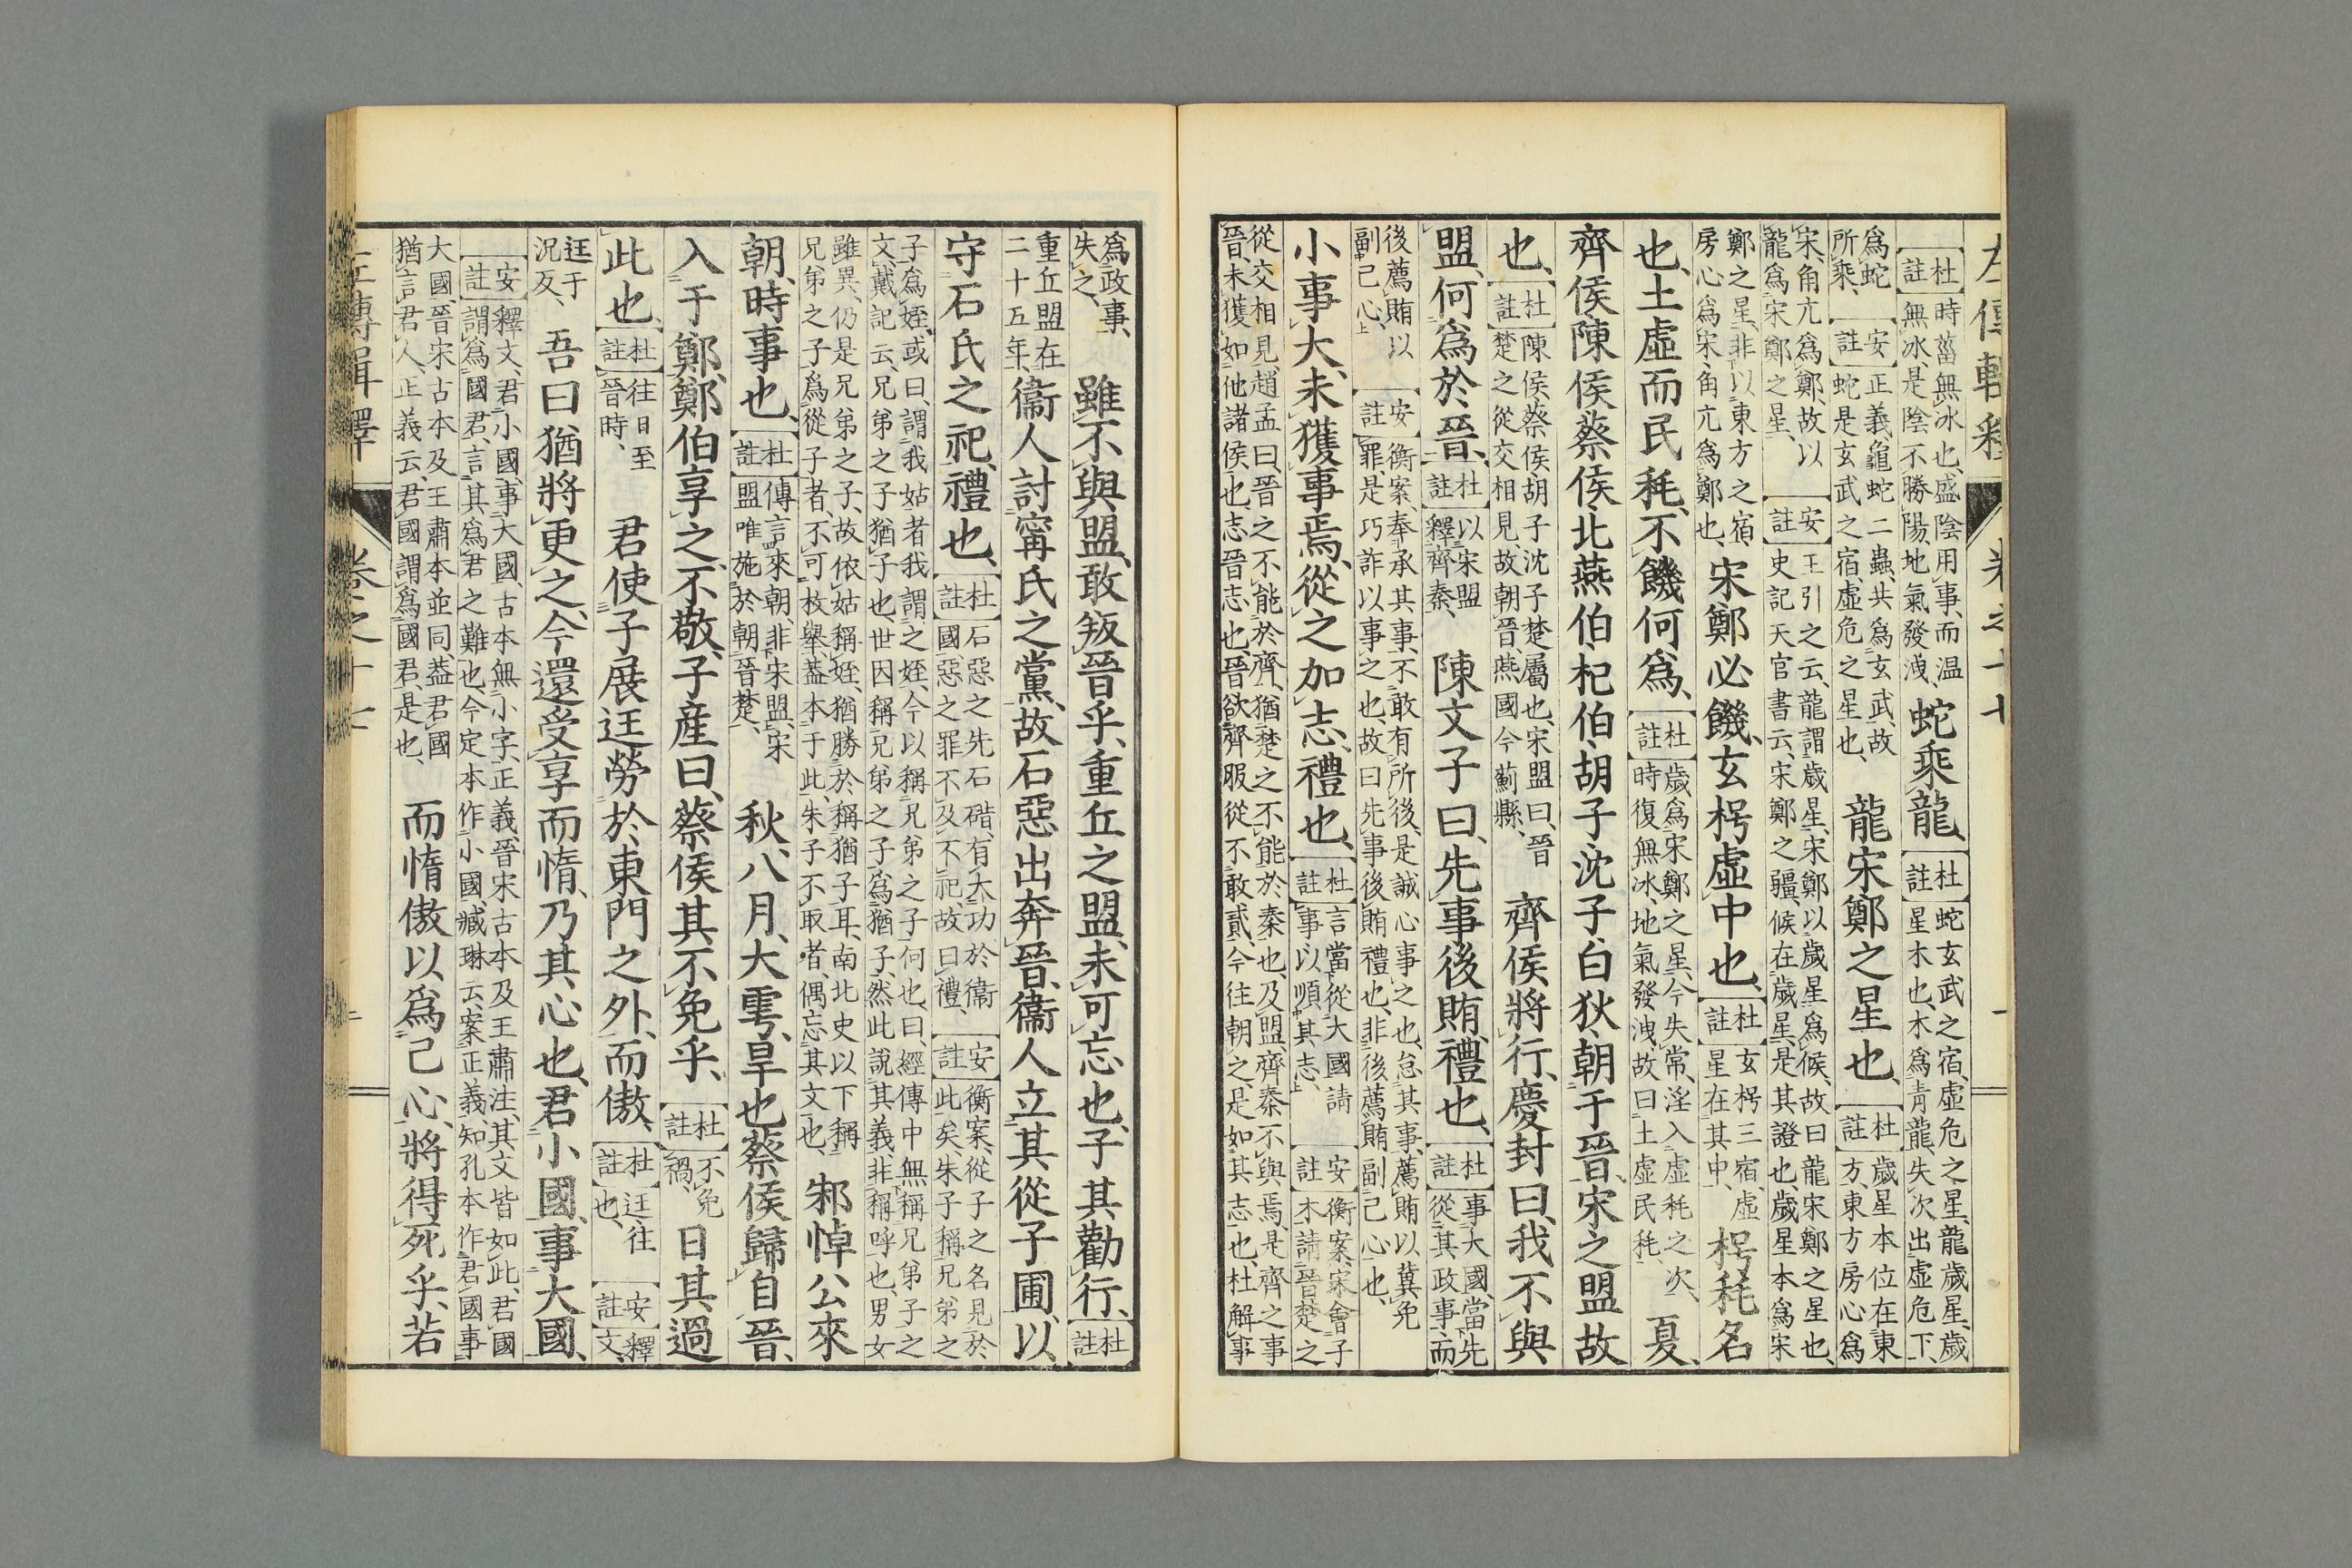 左傳輯釋 卷之十七
杜註 時菑無冰也盛陰用事而温無冰是陰不勝陽地氣發洩 蛇乘龍 杜註 蛇玄武之宿虛危之星龍歲星歲星木也木爲青龍失次出虛危下
爲蛇所乘 安註 正義龜蛇二蟲共爲玄武故蛇是玄武之宿虛危之星也 龍宋鄭之星也 杜註 歲星本位在東方東方房心爲
宋角亢爲鄭故以龍爲宋鄭之星 安註 王引之云龍謂歲星宋鄭以歲星爲候故曰龍宋鄭之星也史記天官書云宋鄭之疆候在歲星是其證也歲星本爲宋
鄭之星非以東方之宿房心爲宋角亢爲鄭也 宋鄭必饑玄枵虛中也 杜註 玄枵三宿虛星在其中 枵秏名
也土虛而民秏不饑何爲 杜註 歲爲宋鄭之星今失常淫入虛秏之次時復無冰地氣發洩故曰土虛民秏 夏
齊侯陳侯蔡侯北燕伯杞伯胡子沈子白狄朝于晉宋之盟故
也 杜註 陳侯蔡侯胡子沈子楚屬也宋盟曰晉楚之從交相見故朝晉燕國今薊縣 齊侯將行慶封曰我不與
盟何爲於晉 杜註 以宋盟釋齊秦 陳文子曰先事後賄禮也 杜註 事大國當先從其政事而
後薦賄以副己心 安註 衡案奉承其事不敢有所後是誠心事之也怠其事薦賄以冀免罪是巧詐以事之也故曰先事後賄禮也非後薦賄副己心也
小事大未獲事焉從之加志禮也 杜註 言當從大國請事以順其志 安註 衡案宋會子木請晉楚之
從交相見趙孟曰晉之不能於齊猶楚之不能於秦也及盟齊秦不與焉是齊之事晉未獲如他諸侯也志晉志也晉欲齊服從不敢貳今往朝之是如其志也杜解事
爲政事失之 雖不與盟敢叛晉乎重丘之盟未可忘也子其勸行 杜註
重丘盟在二十五年 衞人討甯氏之黨故石惡出奔晉衞人立其從子圃以
守石氏之祀禮也 杜註 石惡之先石碏有大功於衞國惡之罪不及不祀故曰禮 安註 衡案從子之名見於此矣朱子稱兄弟之
子爲姪或曰謂我姑者我謂之姪今以稱兄弟之子何也曰經傳中無稱兄弟子之文戴記云兄弟之子猶子也世因稱兄弟之子爲猶子然此說其義非稱呼也男女
雖異仍是兄弟之子故依姑稱姪猶勝於稱猶子耳南北史以下稱兄弟之子爲從子者不可枚舉蓋本于此朱子不取者偶忘其文也 邾悼公來
朝時事也 杜註 傳言來朝非宋盟宋盟唯施於朝晉楚 秋八月大雩旱也蔡侯歸自晉
入于鄭鄭伯享之不敬子産曰蔡侯其不免乎 杜註 不免禍 日其過
此也 杜註 往日至晉時 君使子展迋勞於東門之外而傲 杜註 迋往也 安註 釋文
迋于況反 吾曰猶將更之今還受享而惰乃其心也君小國事大國
安註 釋文君小國事大國古本無小字正義晉宋古本及王肅注其文皆如此君國謂爲國君言其爲君之難也今定本作小國臧琳云案正義知孔本作君國事
大國晉宋古本及王肅本並同蓋君國猶言君人正義云君國謂爲國君是也 而惰傲以爲己心將得死乎若
左傳輯釋 卷之十七